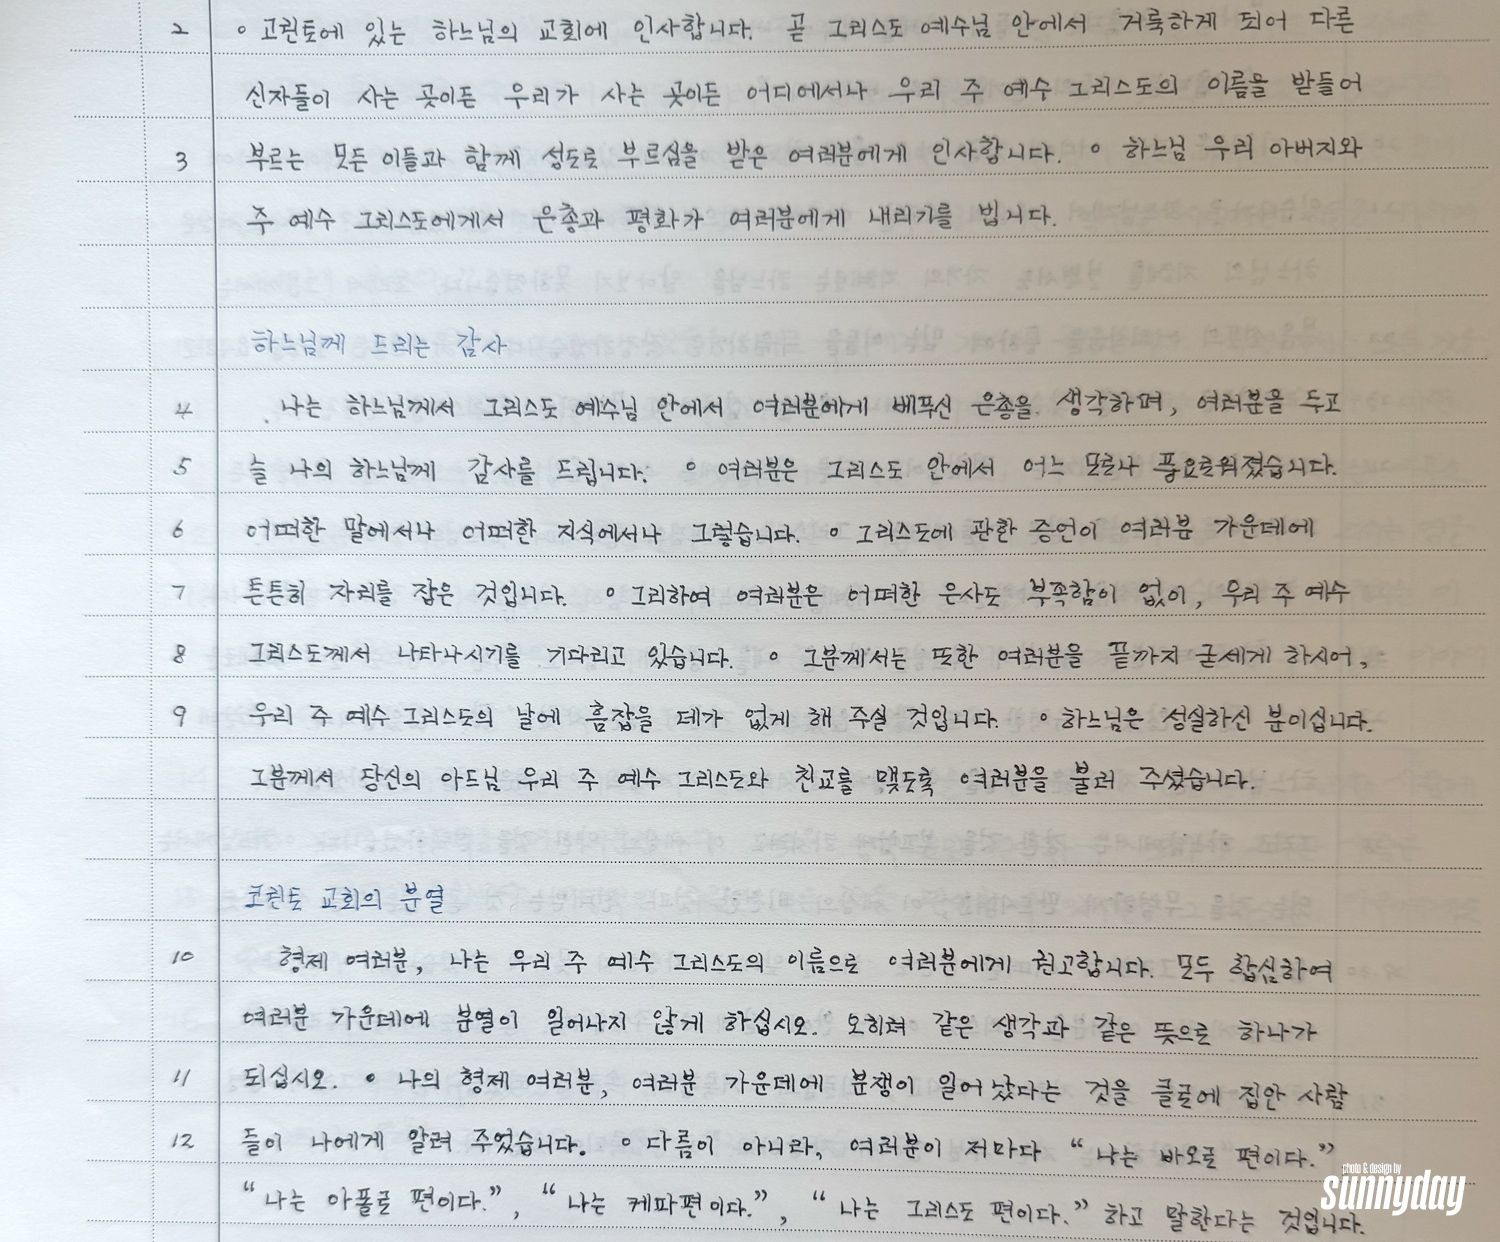 2 ○ 고린토에 있는 하느님의 교회에 인사합니다. 곧 그리스도 예수님 안에서 거룩하게 되어 다른
신자들이 사는 곳이든 우리가 사는 곳이든 어디에서나 우리 주 예수 그리스도의 이름을 받들어
3 부르는 모든 이들과 함께 성도로 부르심을 받은 여러분에게 인사합니다. ○ 하느님 우리 아버지와
주 예수 그리스도에게서 은총과 평화가 여러분에게 내리기를 빕니다.
하느님께 드리는 감사
4 나는 하느님께서 그리스도 예수님 안에서 여러분에게 베푸신 은총을 생각하며, 여러분을 두고
5 늘 나의 하느님께 감사를 드립니다. ○ 여러분은 그리스도 안에서 어느 모로나 풍요로워졌습니다.
6 어떠한 말에서나 어떠한 지식에서나 그렇습니다. ○ 그리스도에 관한 증언이 여러분 가운데에
7 튼튼히 자리를 잡은 것입니다. ○ 그리하여 여러분은 어떠한 은사도 부족함이 없이, 우리 주 예수
8 그리스도께서 나타나시기를 기다리고 있습니다. ○ 그분께서는 또한 여러분을 끝까지 굳세게 하시어,
9 우리 주 예수 그리스도의 날에 흠잡을 데가 없게 해 주실 것입니다. ○ 하느님은 성실하신 분이십니다.
그분께서 당신의 아드님 우리 주 예수 그리스도와 친교를 맺도록 여러분을 불러 주셨습니다.
코린토 교회의 분열
10 형제 여러분, 나는 우리 주 예수 그리스도의 이름으로 여러분에게 권고합니다. 모두 합심하여
여러분 가운데에 분열이 일어나지 않게 하십시오. 오히려 같은 생각과 같은 뜻으로 하나가
11 되십시오. ○ 나의 형제 여러분, 여러분 가운데에 분쟁이 일어났다는 것을 클로에 집안 사람
12 들이 나에게 알려 주었습니다. ○ 다름이 아니라, 여러분이 저마다 “나는 바오로 편이다.”
“나는 아폴로 편이다.”, “나는 케파편이다.”, “나는 그리스도 편이다.” 하고 말한다는 것입니다.
photo & design by
sunnyday